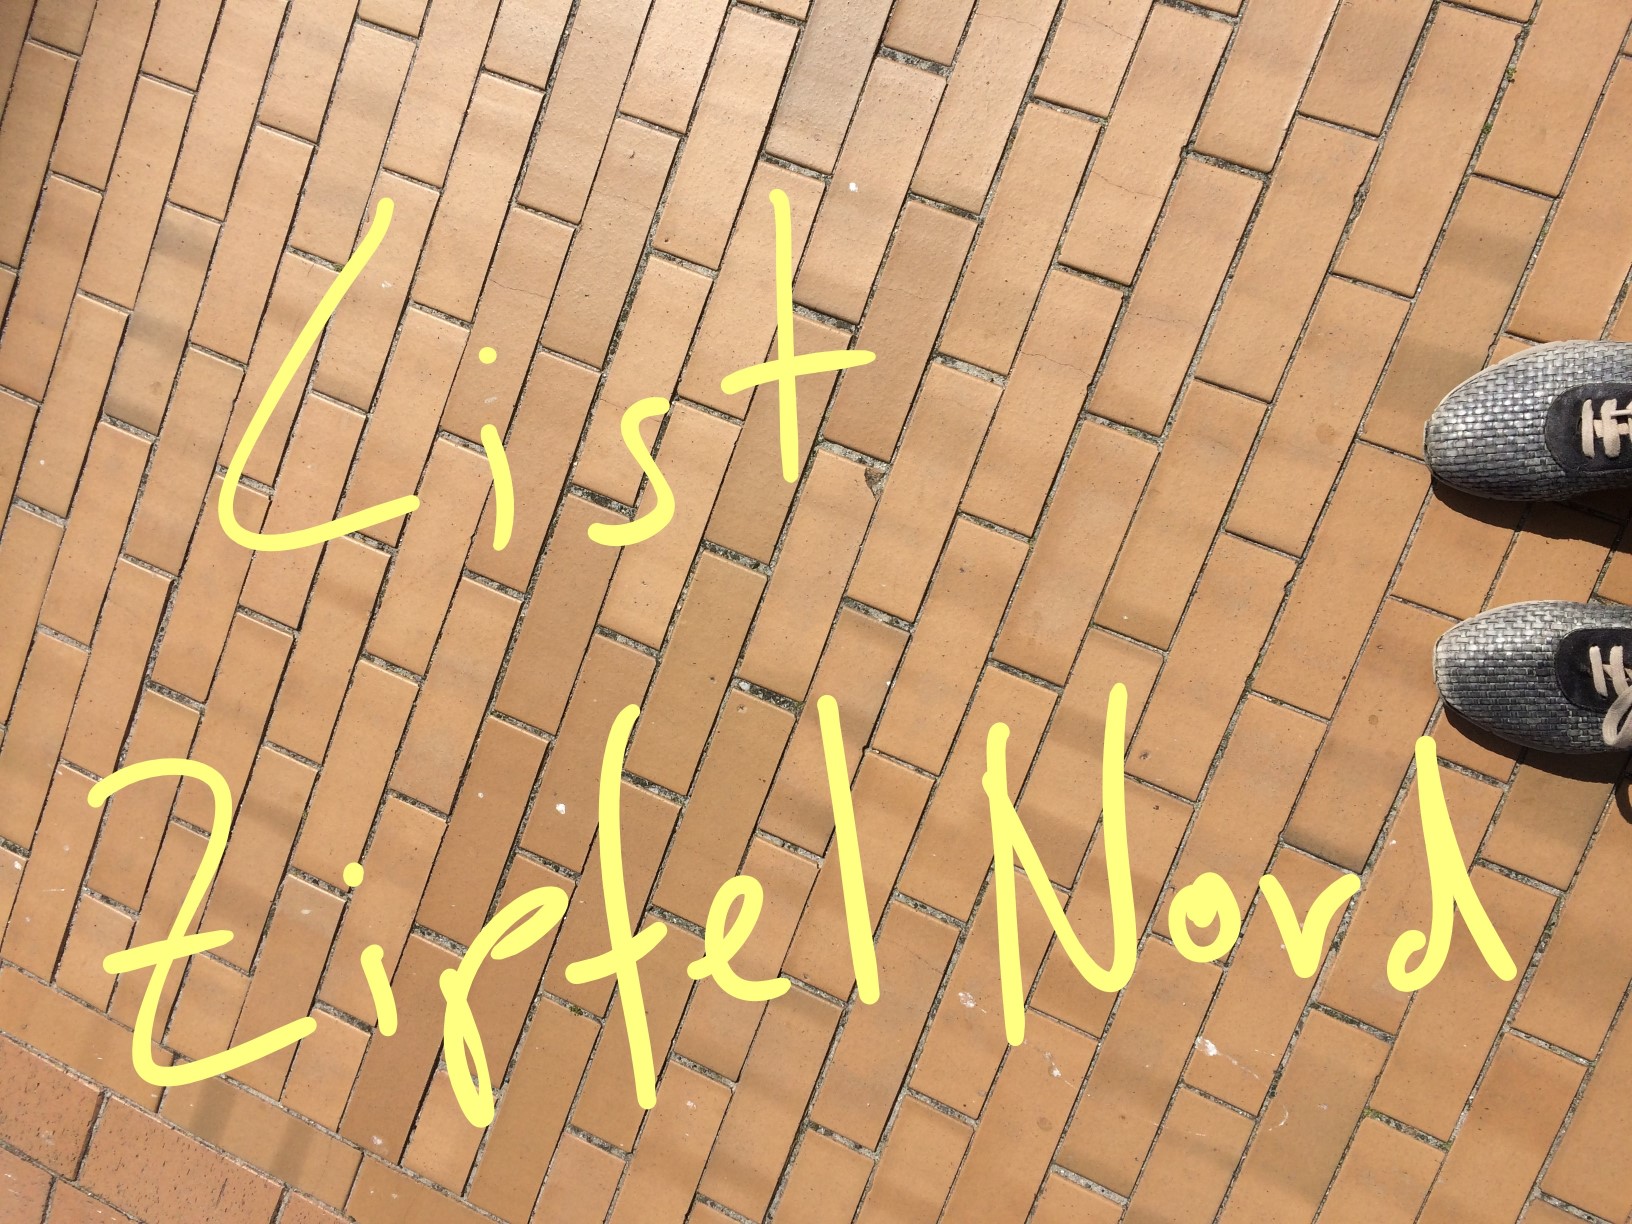 List
Zipfel Nord